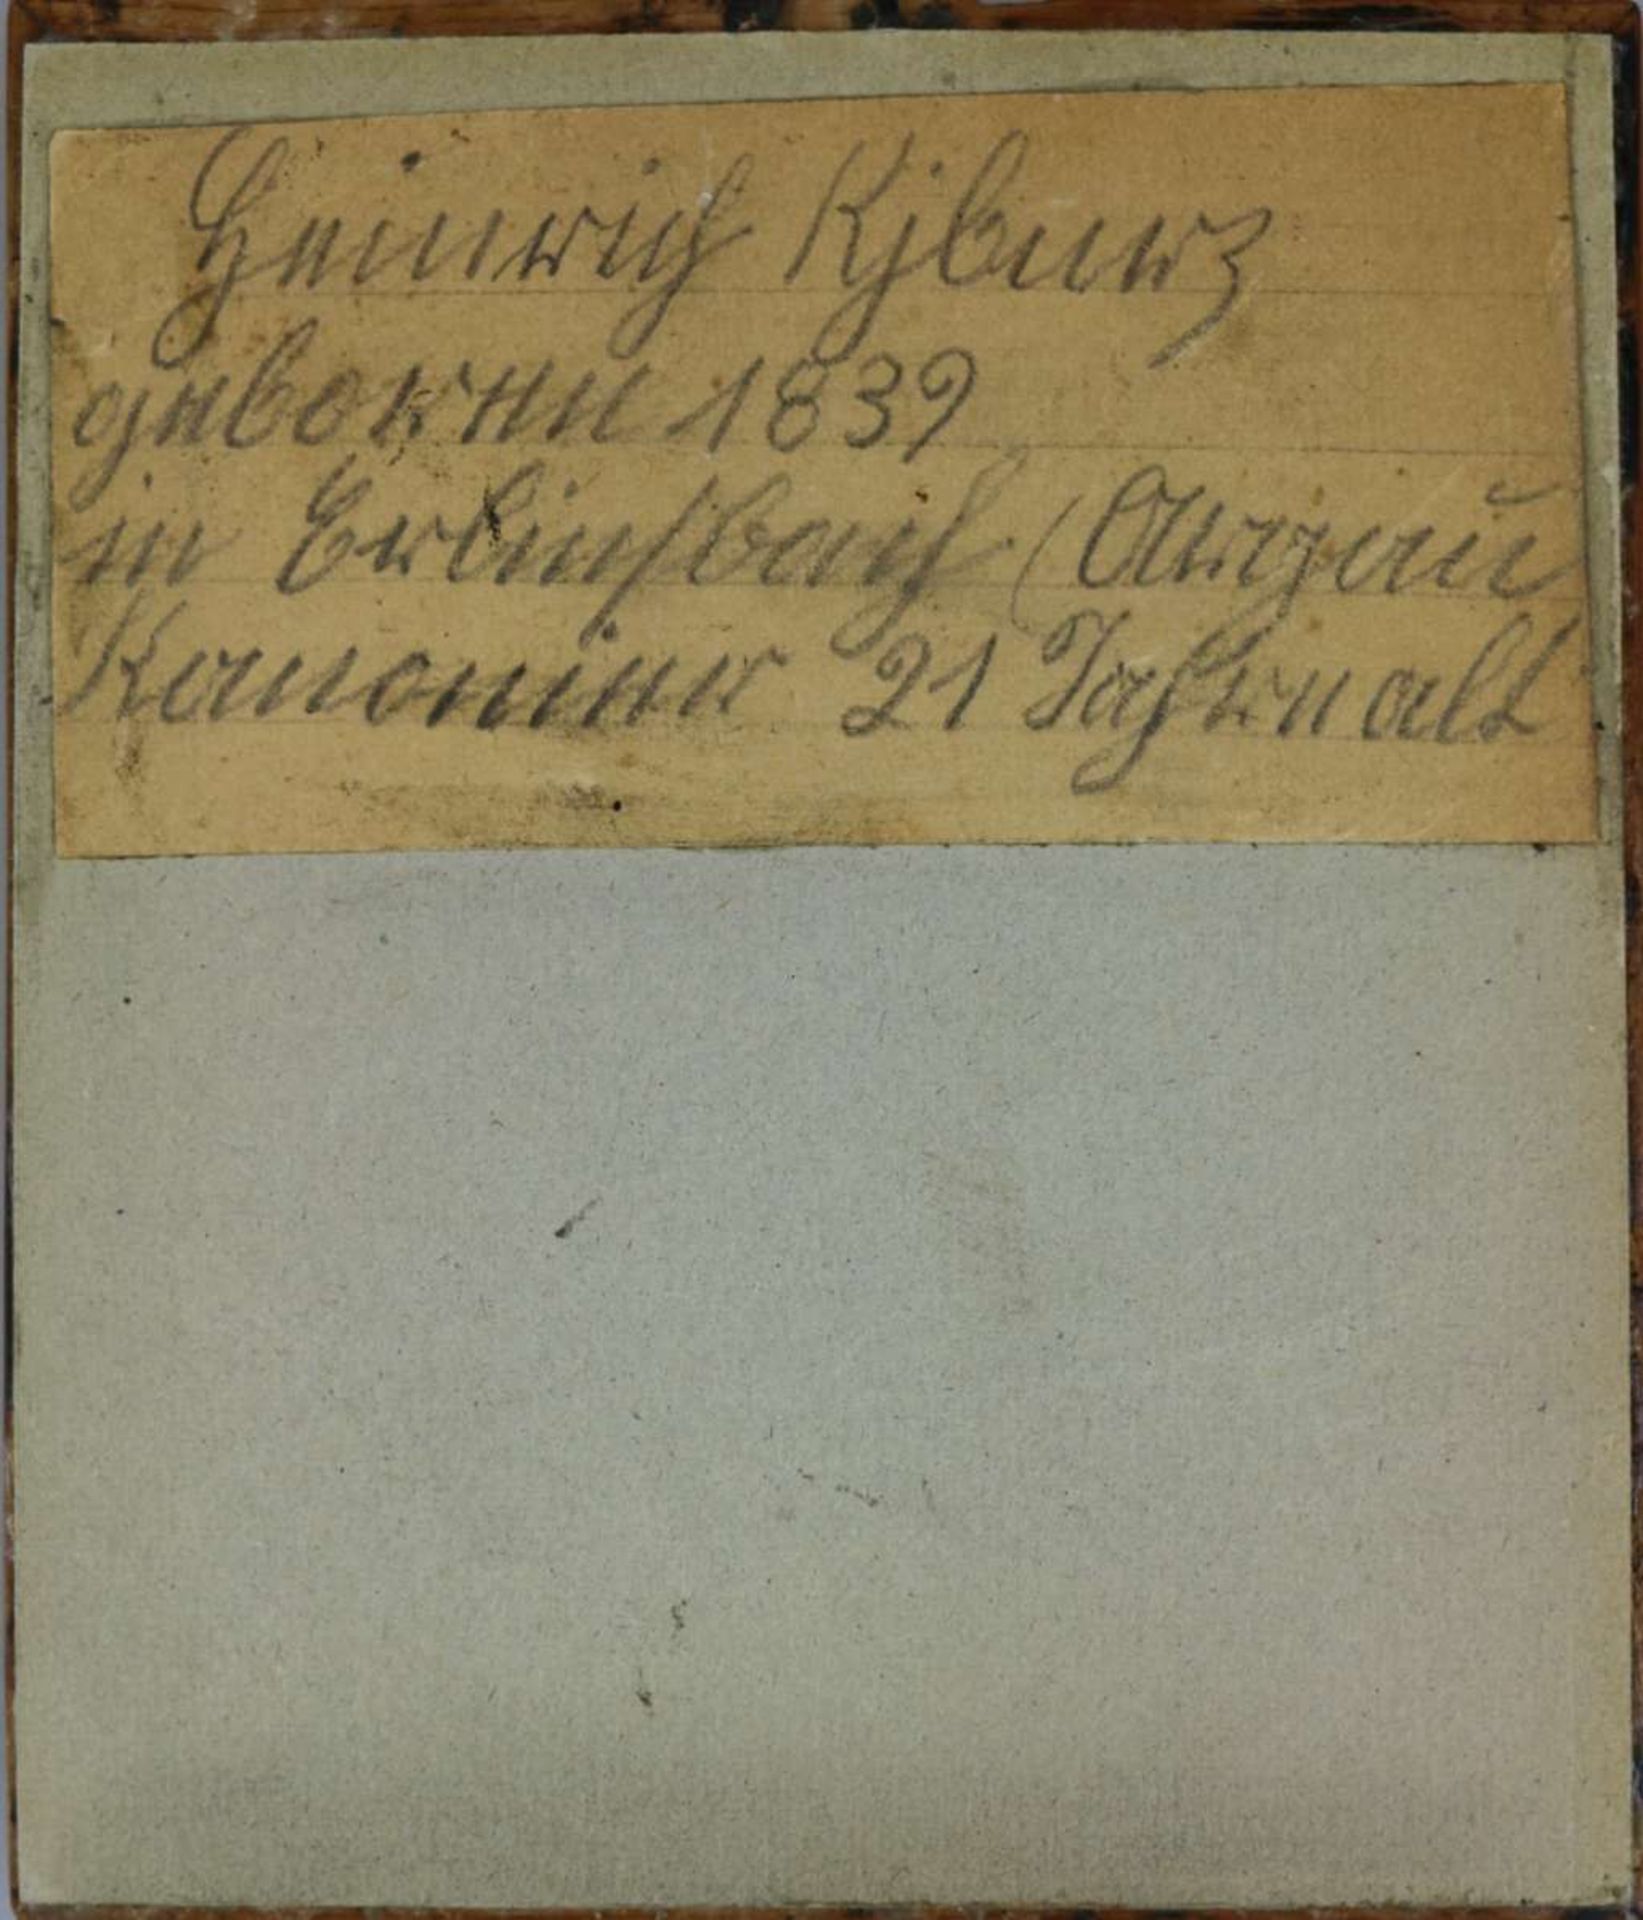 Heinrich Kjburz
geboren 1839
in Erlinsbach (Aargau
Kanonier 21 Jahre alt